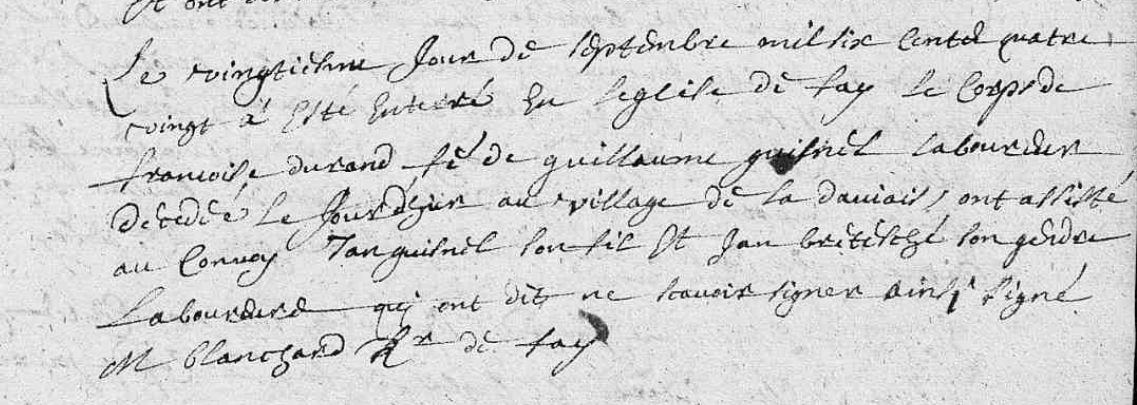 Le vingtiesme Jour de septembre mil six cents quatre
vingt à esté Enterré En leglise de fay le Corps de
francoise durand fe de guillaume guisnel laboureur
décédéé le Jour d'hier au village de la daviais, ont assisté
au Convoy Jan guisnel son fils Et Jan bretesché son gendre
Laboureurs qui ont dit ne scavoir signer ainsi signé
M blanchard Rr de fay